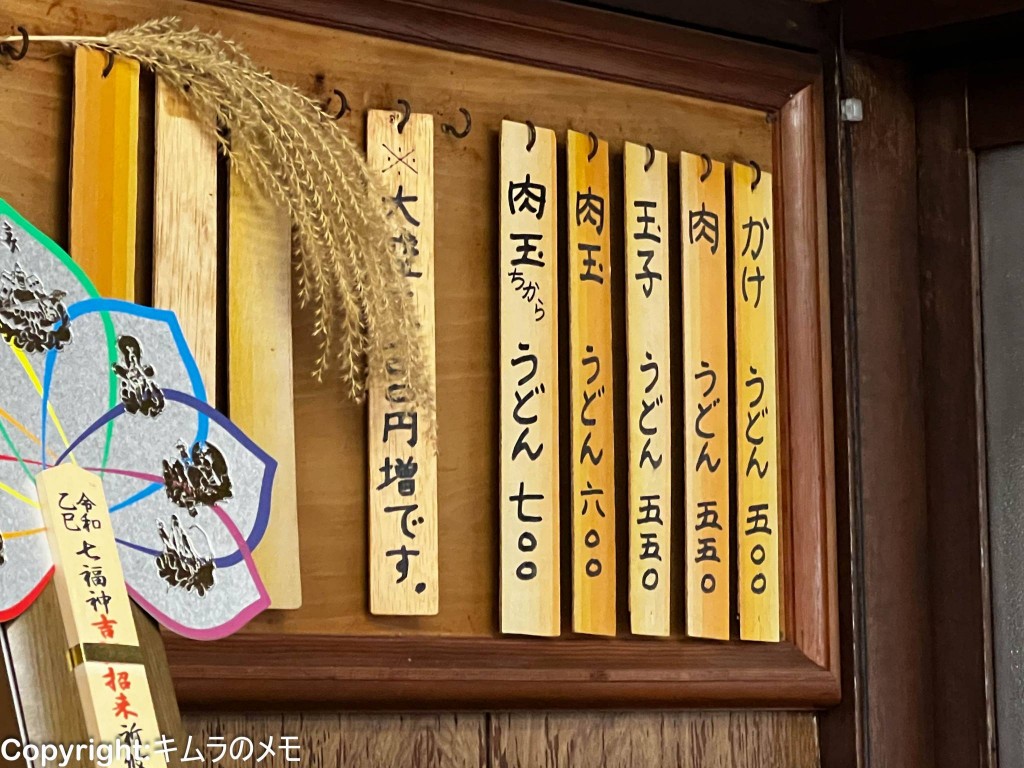 かけ うどん 五〇〇
肉 うどん 五五〇
玉子 うどん 五五〇
肉玉 うどん 六〇〇
肉玉ちから うどん 七〇〇
※大盛 円増です。
令和
乙巳
七福神吉招来祈
Copyright:キムラのメモ